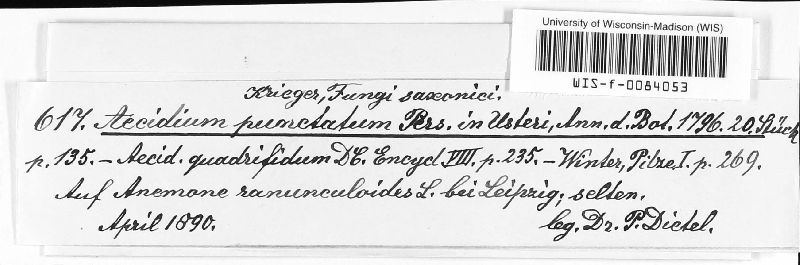 University of Wisconsin-Madison (WIS)
WIS-f-0084053
Krieger, Fungi saxonici.
617. Aecidium punctatum Pers. in Usteri, Ann. d. Bot. 1796. 20. Stück
p. 135. – Aecid. quadrifidum DC. Encycl. VIII. p. 235. – Winter, Pilze I. p. 269.
Auf Anemone ranunculoides L. bei Leipzig; selten.
April 1890. leg. Dr. P. Dietel.